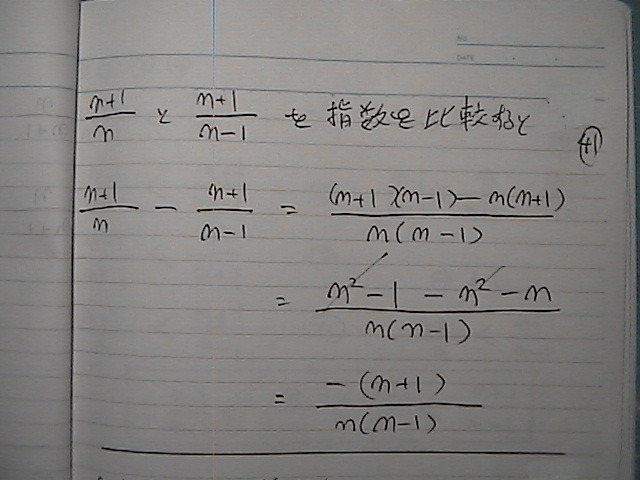 NO.
DATE
(n+1)/n と (n+1)/(n-1) を 指数を比較すると
41
(n+1)/n - (n+1)/(n-1) = ((n+1)(n-1)-n(n+1))/(n(n-1))
= (n²-1-n²-n)/(n(n-1))
= (-(n+1))/(n(n-1))